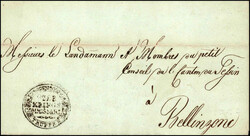 Messieurs le Landamann et Membres du petit
Conseil de l. Canton de Tessin
à
Bellinzone